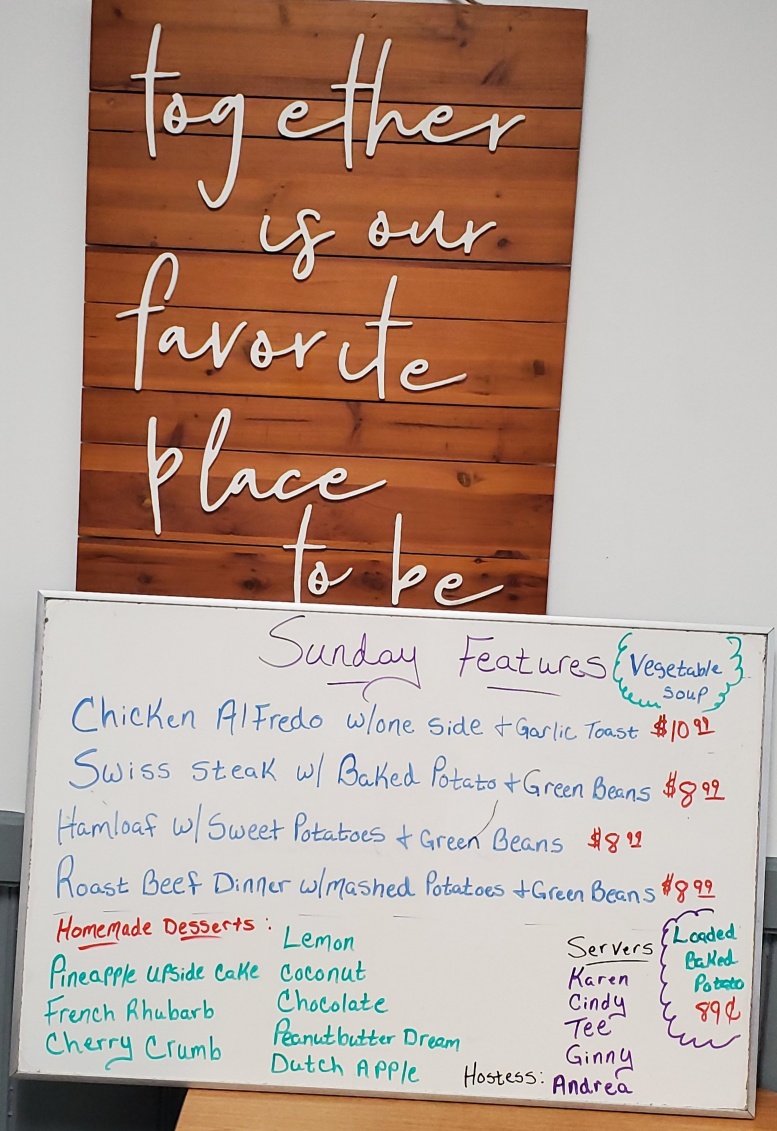 together
is our
favorite
place
to be
Sunday Features
Vegetable
Soup
Chicken Alfredo w/one side + Garlic Toast $10.99
Swiss Steak w/ Baked Potato + Green Beans $8.99
Hamloaf w/Sweet Potatoes + Green Beans $8.99
Roast Beef Dinner w/mashed Potatoes + Green Beans $8.99
Homemade Desserts:
Pineapple upside cake
French Rhubarb
Cherry Crumb
Lemon
Coconut
Chocolate
Peanutbutter Dream
Dutch Apple
Servers
Karen
Cindy
Tee
Ginny
Hostess: Andrea
Loaded
Baked
Potato
89¢